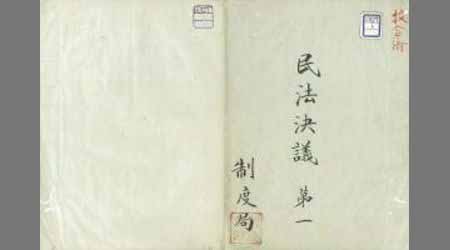 民法決議 第一
制度局